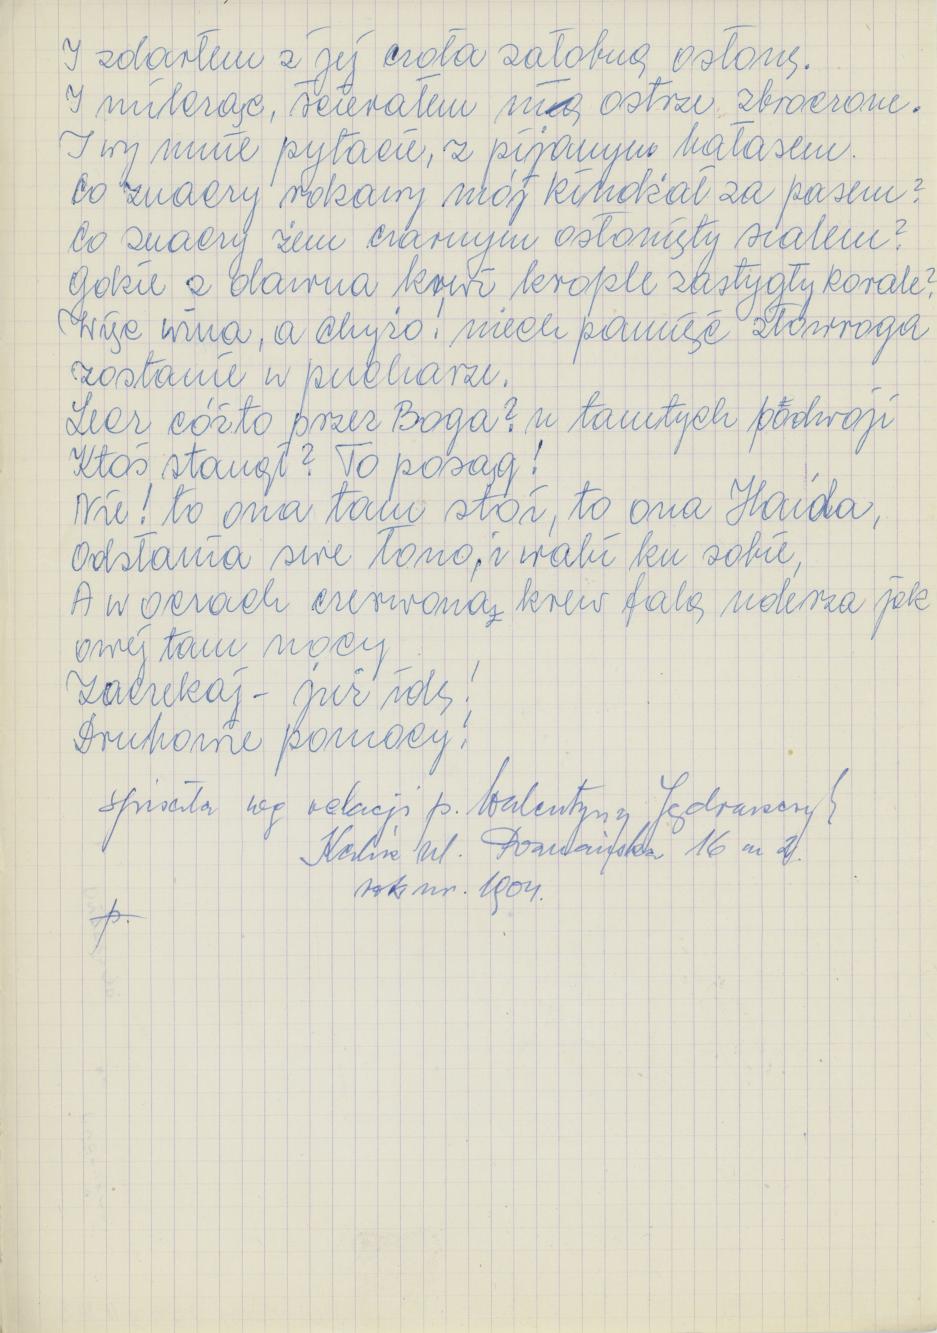 I zdarłem z jej czoła załobną osłonę.
I milcząc, ścierałem nią ostrze zbroczone.
I wy mnie pytacie, z pijanym hałasem.
Co znaczy rdzawy mój kindżał za pasem?
Co znaczy żem czarnym osłonięty szalem?
Gdzie z dawna krwi krople zastygły korale?
Więc wina, a chyżo! niech pamięć złowroga
zostanie w pucharze.
Lecz cóżto przez Boga? u tamtych podwoji
Ktoś stanął? To posąg!
Nie! to ona tam stoi, to ona Haida,
odsłania swe łono, i wabi ku sobie,
A w oczach czerwoną krew falą uderza jak
owej tam nocy
Zaczekaj – już idę!
Druhowie pomocy!
spisała wg relacji p. Walentyny Jędraszczyk
Kalisz ul. Poznańska 16 m 2.
ur. 1904.
p.